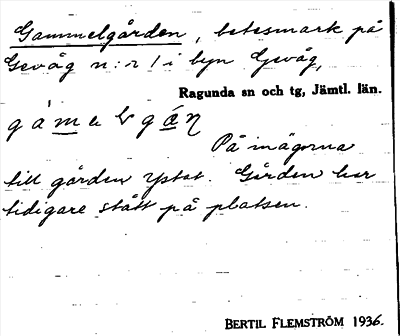 Gammelgården, betesmark på
Gevåg n:r 1 i byn Gevåg,
Ragunda sn och tg, Jämtl. län.
På inägorna
till gården Ystat. Gården har
tidigare stått på platsen.
BERTIL FLEMSTRÖM 1936.